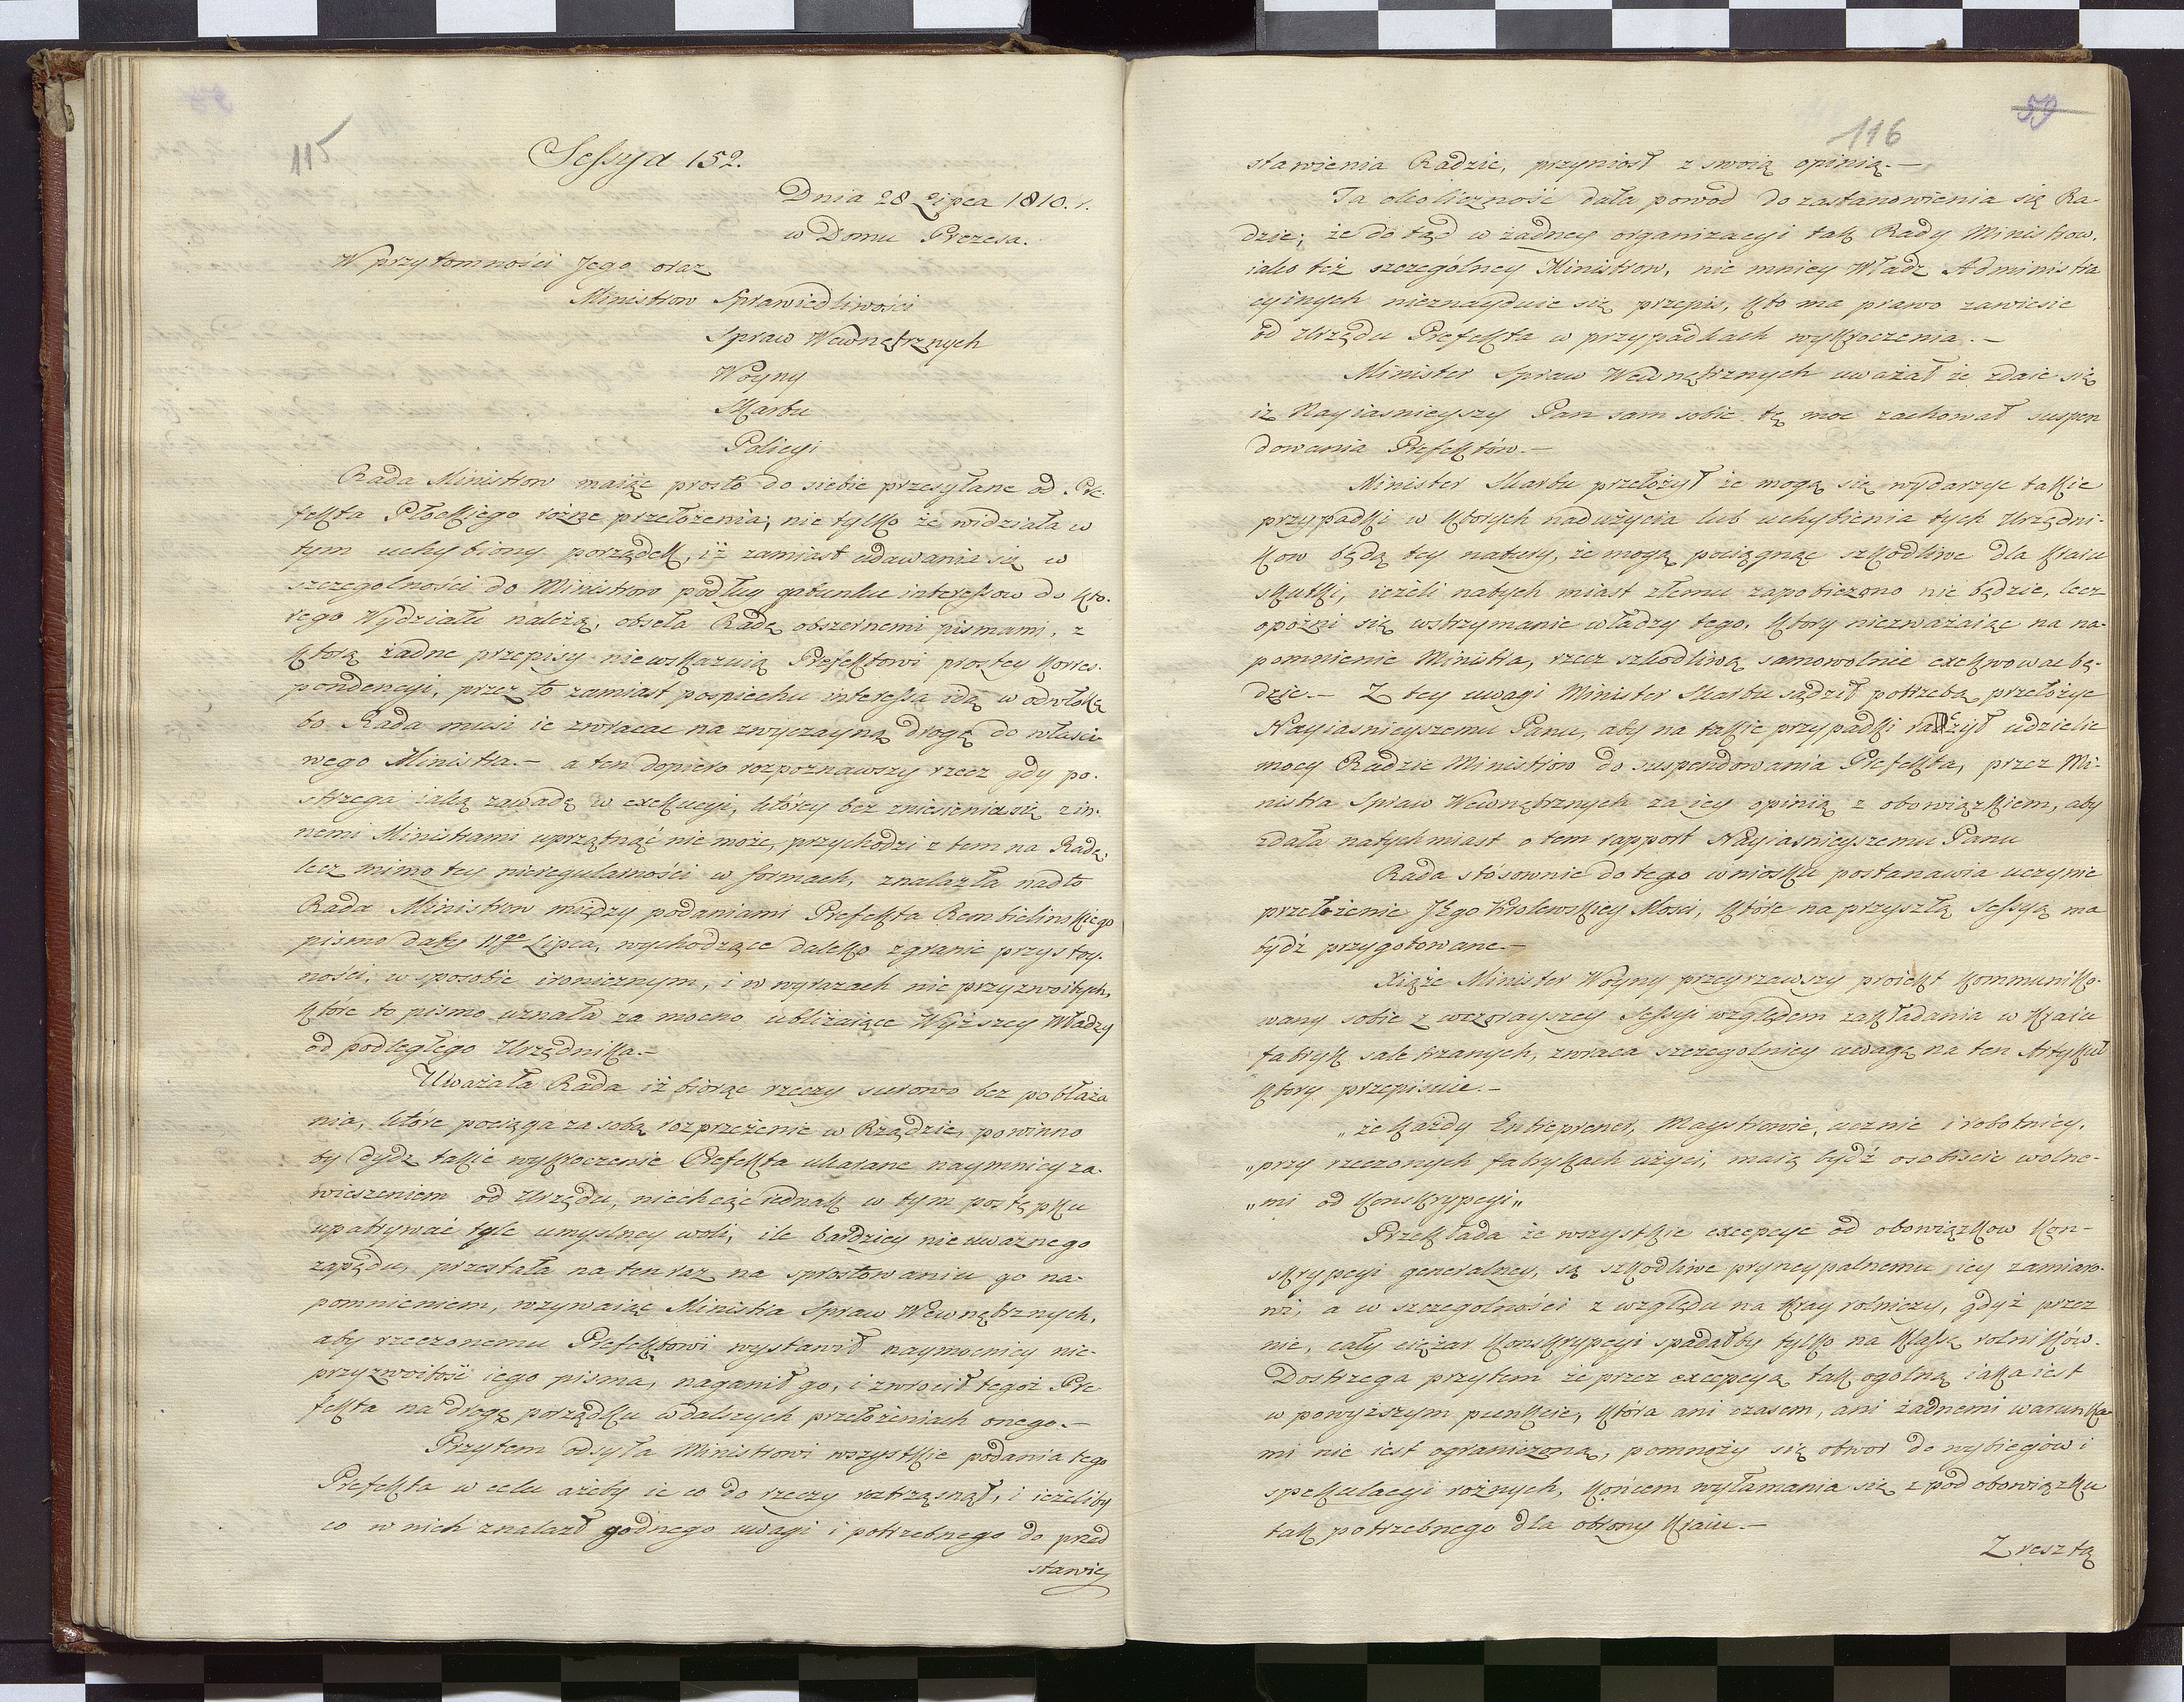 115
Sessya 152.
Dnia 28 Lipca 1810. r.
w Domu Prezesa.
W przytomności Jego oraz
Ministrow Sprawiedliwości
Spraw Wewnętrznych
Woyny
Skarbu
Policyi
Rada Ministrow maiąc prosto do siebie przesyłane od Pre-
fekta Płockiego rożne przełożenia, nie tylko że widziała w
tym uchybiony porządek, iż zamiast udawania się w
szczegolności do Ministrow podług gatunku interessow do kto-
rego Wydziału należą, obseła Radę obszernemi pismami, z
ktorą żadne przepisy niewskazuią Prefektowi prostey korres-
pondencyi, przez to zamiast pospiechu interessa idą w odwłokę
bo Rada musi ie zwracac na zwyczayną drogę do własci-
wego Ministra. – a ten dopiero rozpoznawszy rzecz gdy po-
strzega iaką zawadę w exekucyi, którey bez zniesienia się z in-
nemi Ministrami uprzątnąć nie może, przychodzi z tem na Radę,
lecz mimo tey nieregularności w formach, znalazła nadto
Rada Ministrow między podaniami Prefekta Rembielinskiego
pismo daty 11go Lipca, wychodzące daleko z granic przystoy-
ności, w sposobie ironicznym, i w wyrazach nie przyzwoitych,
które to pismo uznała za mocno ubliżaiące Wyższey Władzy
od podległego Urzędnika. –
Uważała Rada iż biorąc rzeczy surowo bez pobłaża
nia, które pociąga za sobą rozprzeżenie w Rządzie, powinno
by bydz takie wykroczenie Prefekta ukarane naymniey za-
wieszeniem od Urzędu, niechcąc iednak w tym postępku
upatrywać tyle umyslney woli, ile bardziey nieuwaznego
zapędu, przestała na ten raz na sprostowaniu go na-
pomnieniem, wzywaiąc Ministra Spraw Wewnętrznych,
aby rzeczonemu Prefektowi wystawił naymocniey nie-
przyzwoitość iego pisma, naganił go, i zwrocił tegoż Pre
fekta na drogę porządku w dalszych przełożeniach onego. –
Przytem odsyła Ministrowi wszystkie podania tego
Prefekta w celu ażeby ie co do rzeczy roztrząsnął, i ieżeliby
co w nich znalazł godnego uwagi i potrzebnego do przed
stawie
59
116
stawienia Radzie, przyniosł z swoią opinią. –
Ta okoliczność dała powod do zastanowienia się Ra-
dzie; że do tąd w żadney organizacyi tak Rady Ministrow,
iako też szczególney Ministrow, nie mniey Władz Administra
cyinych nieznayduie się przepis, kto ma prawo zawiesic
od Urzędu Prefekta w przypadkach wykroczenia. –
Minister Spraw Wewnętrznych uważał że zdaie się
iż Nayiasnieyszy Pan sam sobie tę moc zachował suspen
dowania Prefektów. –
Minister Skarbu przełożył że mogą się wydarzyc takie
przypadki w ktorych nadużycia lub uchybienia tych Urzędni-
kow będą tey natury, że mogą pociągnąc szkodliwe dla kraiu
skutki, ieżeli natych miast złemu zapobieżono nie będzie, lecz
opóźni się wstrzymanie władzy tego, ktory niezważaiąc na na-
pomnienie Ministra, rzecz szkodliwą samowolnie exekwowac bę-
dzie. – Z tey uwagi Minister Skarbu sądził potrzebą przełożyc
Nayiasnieyszemu Panu, aby na takie przypadki raczył udzielic
mocy Radzie Ministrów do suspendowania Prefekta, przez Mi-
nistra Spraw Wewnętrznych za iey opinią z obowiązkiem, aby
zdała natychmiast o tem rapport Nayiasnieyszemu Panu
Rada stósownie do tego wniosku postanawia uczynic
przełożenie Jego Krolewskiey Mosci, które na przyszłą Sessyą ma
bydź przygotowane. –
Xiąże Minister Woyny przeyrzawszy proiekt kommuniko-
wany sobie z wczorayszey Sessyi względem zakładania w kraiu
fabryk saletrzanych, zwraca szczegolniey uwagę na ten Artykuł
ktory przepisuie. –
„że każdy Entreprener, Maystrowie, ucznie i robotnicy,
„przy rzeczonych fabrykach użyci, maią bydź osobiscie wolne-
„mi od konskrypcyi„
Przekłada że wszystkie excepcye od obowiązkow Kon-
skrypcyi generalney, są szkodliwe pryncypalnemu iey zamiaro-
wi, a w szczegolności z względu na kray rolniczy, gdyż przez
nie, cały ciężar konskrypcyi spadałby tylko na klassę rolników.
Dostrzega przytem że przez excepcyą tak ogolną iaka iest
w powyższym punkcie, która ani czasem, ani żadnemi warunka
mi nie iest ograniczoną, pomnoży się otwor do wybiegów i
spekulacyi rożnych, końcem wyłamania się z pod obowiązku
tak potrzebnego dla obrony kraiu. –
Z resztą